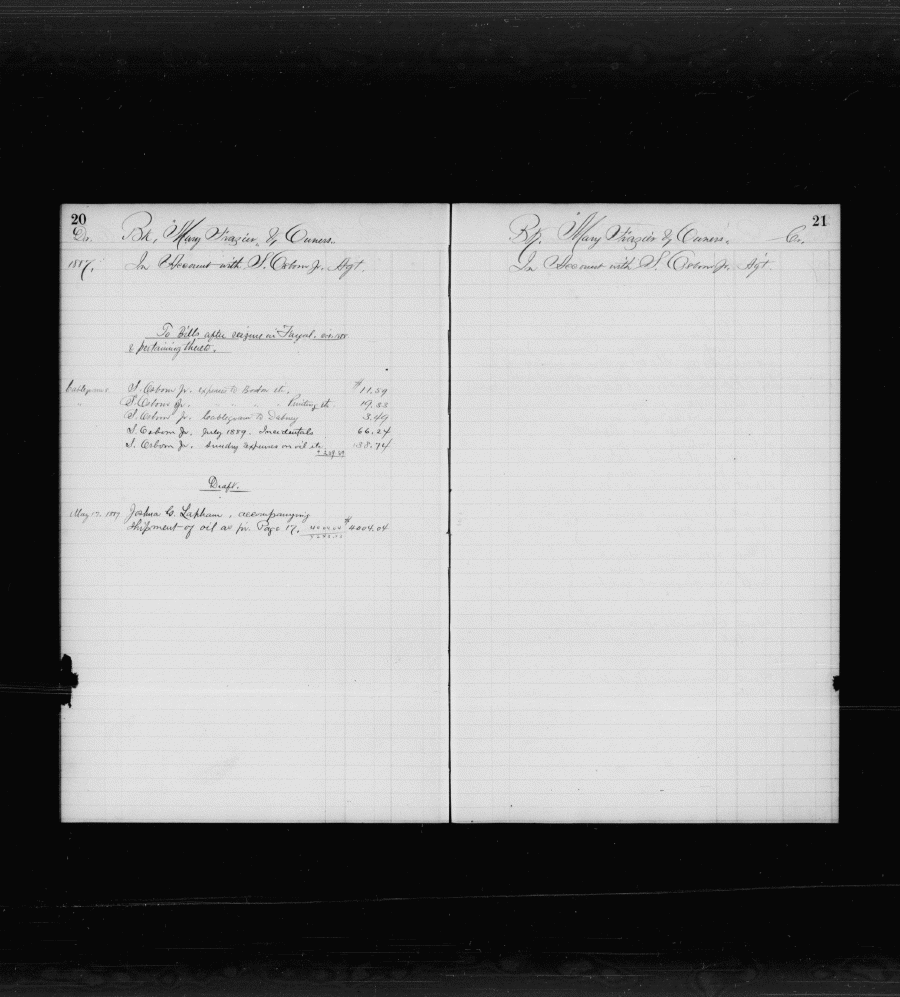 20
Dr. Bk. "Mary Frazier" & Owners.
1887. In Account with S. Osborn Jr. Agt.
To Bills after seizure in Fayal.
& pertaining thereto.
S. Osborn Jr. expenses to Boston etc. $11.59
" S. Osborn Jr. " " " Printing etc 19.33
S. Osborn Jr. Cablegram to Dabney 3.49
S. Osborn Jr. July 1889. Incidentals 66.24
S. Osborn Jr. Sundry expenses on oil etc. 138.74
Draft.
May 17. 1887 Joshua G. Lapham, accompanying
Shipment of oil as pr. Page 17. $4004.04
21
Bk. "Mary Frazier" & Owners. Cr.
In Account with S. Osborn Jr. Agt